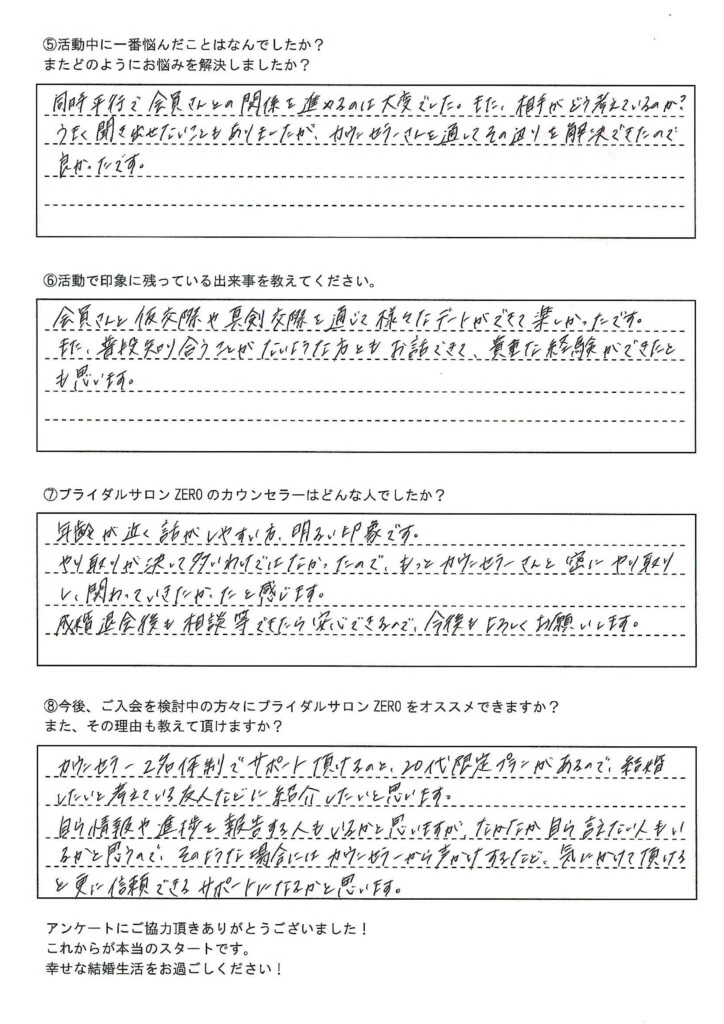 ⑤活動中に一番悩んだことはなんでしたか？
またどのようにお悩みを解決しましたか？
同時平行で会員さんとの関係を進めるのは大変でした。また、相手がどう考えているのか？
うまく聞き出せないこともありましたが、カウンセラーさんを通してその辺りを解決できたので
良かったです。
⑥活動で印象に残っている出来事を教えてください。
会員さんと仮交際や真剣交際を通じて様々なデートができて楽しかったです。
また、普段知り合うことがないような方ともお話できて、貴重な経験ができたと
も思います。
⑦ブライダルサロン ZERO のカウンセラーはどんな人でしたか？
年齢が近く話がしやすい方、明るい印象です。
やり取りが決して多いわけではなかったので、もっとカウンセラーさんと密にやり取り
し、関わっていきたかったと感じます。
成婚退会後も相談等できたら安心できるので、今後もよろしくお願いします。
⑧今後、ご入会を検討中の方々にブライダルサロン ZERO をオススメできますか？
また、その理由も教えて頂けますか？
カウンセラー2名体制でサポート頂けるのと、20代限定プランがあるので、結婚
したいと考えている友人などに紹介したいと思います。
自ら情報や進捗を報告する人もいるかと思いますが、なかなか自ら言えない人もい
るかと思うので、そのような場合にはカウンセラーから声かけするなど、気にかけて頂ける
と更に信頼できるサポートになるかと思います。
アンケートにご協力頂きありがとうございました！
これからが本当のスタートです。
幸せな結婚生活をお過ごしください！